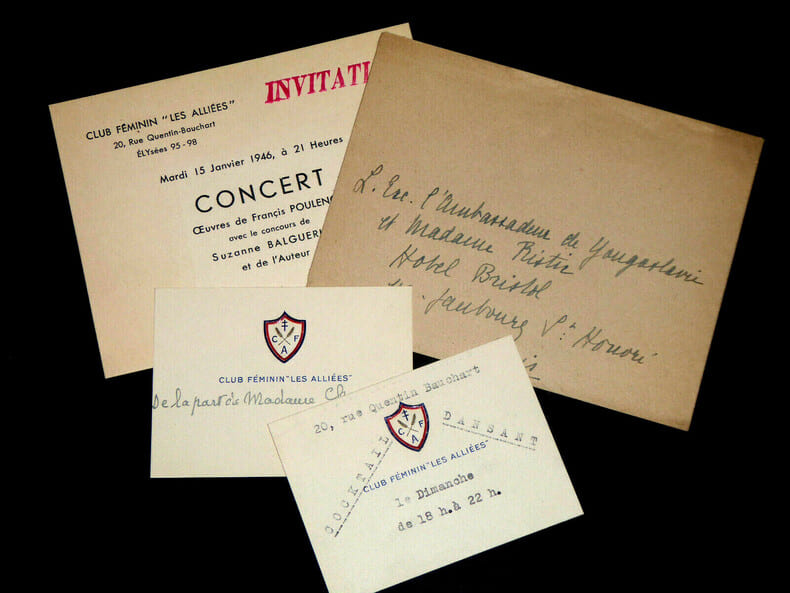 INVITATI
CLUB FÉMININ "LES ALLIÉES"
20, Rue Quentin-Bauchart
ÉLYsées 95-98
Mardi 15 Janvier 1946, à 21 Heures
CONCERT
Œuvres de Francis POULENC
avec le concours de
Suzanne BALGUER
et de l'Auteur
L. Exc. l'Ambassadeur de Yougoslavie
et Madame Ristic
Hotel Bristol
Faubourg St Honoré
C F
A
CLUB FÉMININ "LES ALLIÉES"
De la part de Madame Ch
20, rue Quentin Bauchart
C F
A
COCKTAIL DANSANT
CLUB FÉMININ "LES ALLIÉES"
le Dimanche
de 18 h. à 22 h.